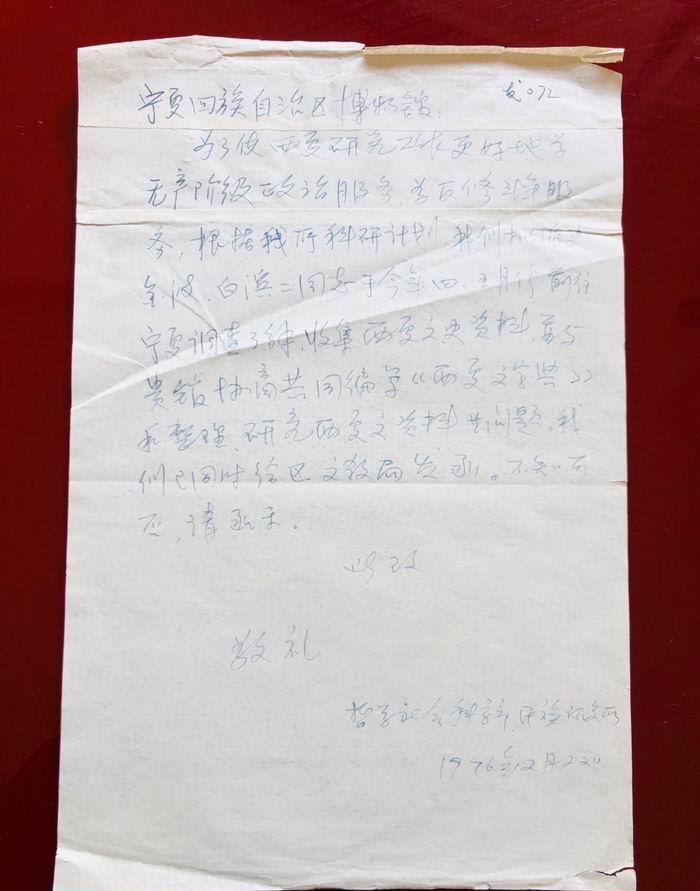 发072
宁夏回族自治区博物馆:
为了使西夏研究工作更好地为
无产阶级政治服务,为反修斗争服
务,根据我所科研计划,我们
金波、白滨二同志于今年四、五月份前往
宁夏调查了解,收集西夏文史资料,并与
贵馆协商共同编写《西夏文字典》
和整理、研究西夏文资料等问题。我
们已同时给区文教局发函。不知可
否,请函示。
此致
敬礼
哲学社会科学部民族研究所
1976年2月22日